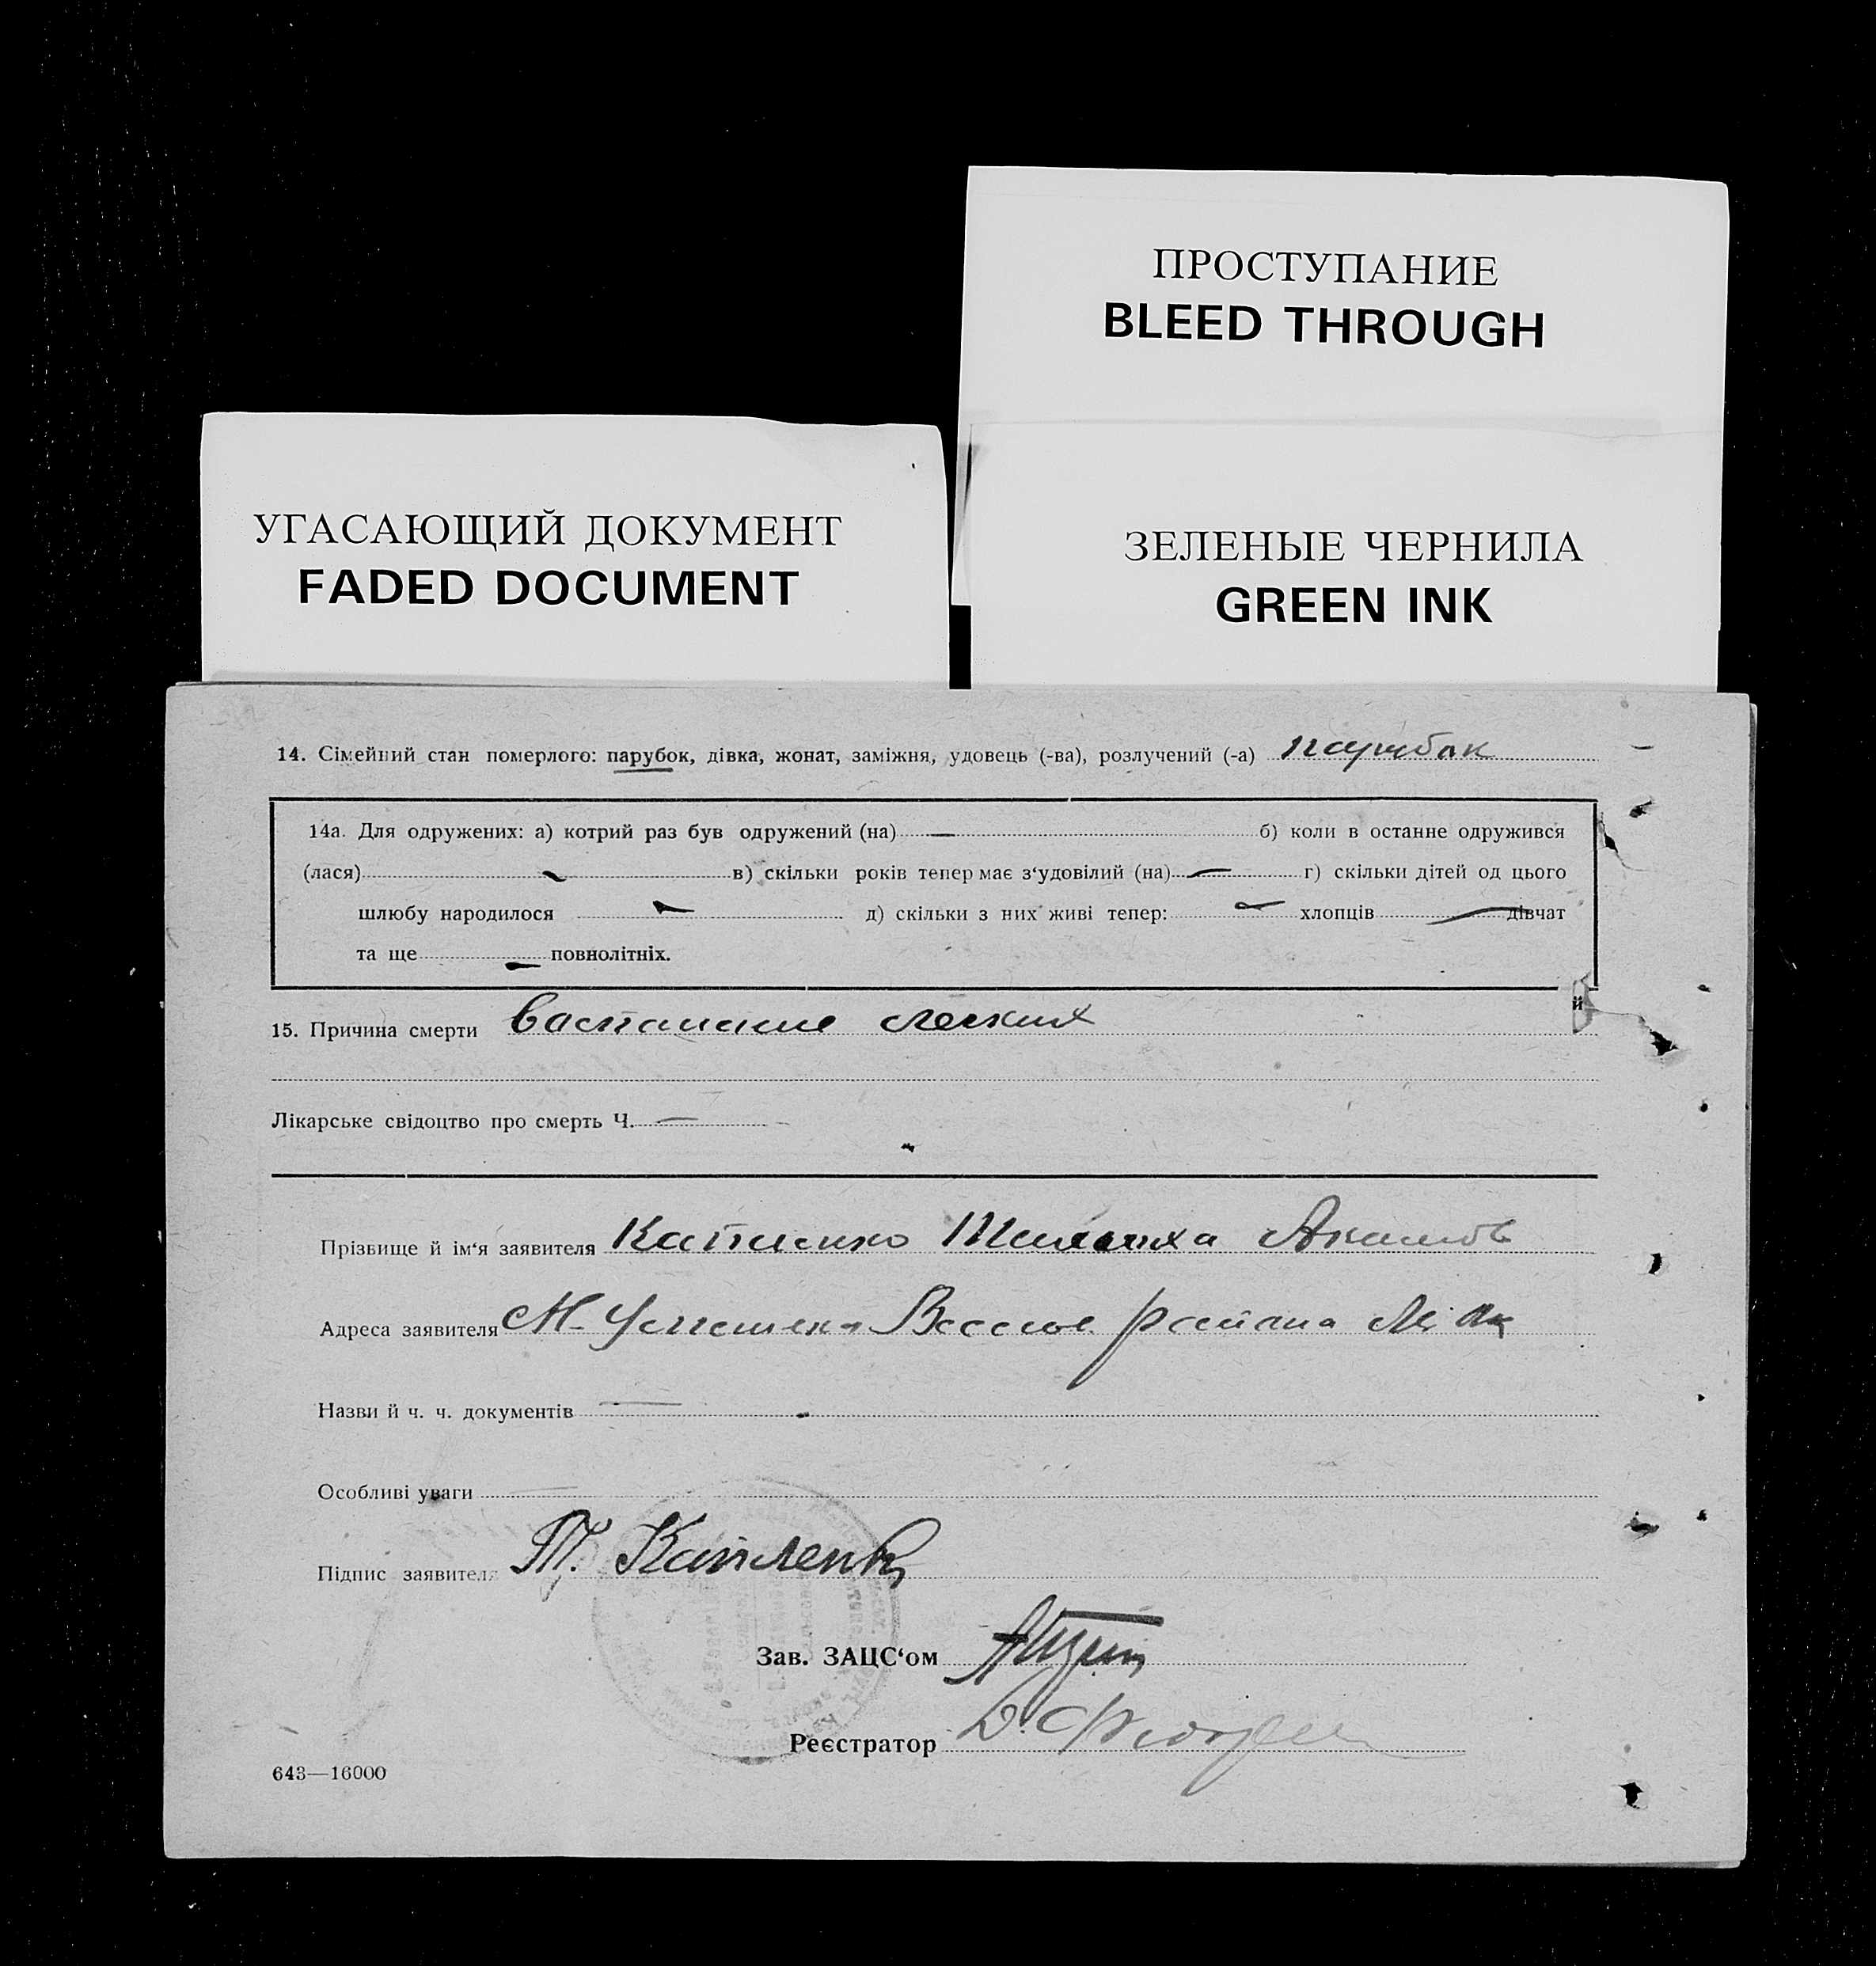 ПРОСТУПАНИЕ
BLEED THROUGH
УГАСАЮЩИЙ ДОКУМЕНТ
FADED DOCUMENT
ЗЕЛЕНЫЕ ЧЕРНИЛА
GREEN INK
14. Сімейний стан померлого: парубок, дівка, жонат, заміжня, удовець (-ва), розлучений (-а) парубок
14а. Для одружених: а) котрий раз був одружений (на) — б) коли в останнє одружився
(лася) — в) скільки років тепер має з‘удовілий (на) — г) скільки дітей од цього
шлюбу народилося — д) скільки з них живі тепер: — хлопців — дівчат
та ще — повнолітніх.
15. Причина смерти легких
й
Лікарське свідоцтво про смерть Ч. —
Прізвище й ім‘я заявителя
Адреса заявителя района
Назви й ч. ч. документів —
Особливі уваги —
Підпис заявителя
Зав. ЗАЦС‘ом
Реєстратор
643—16000